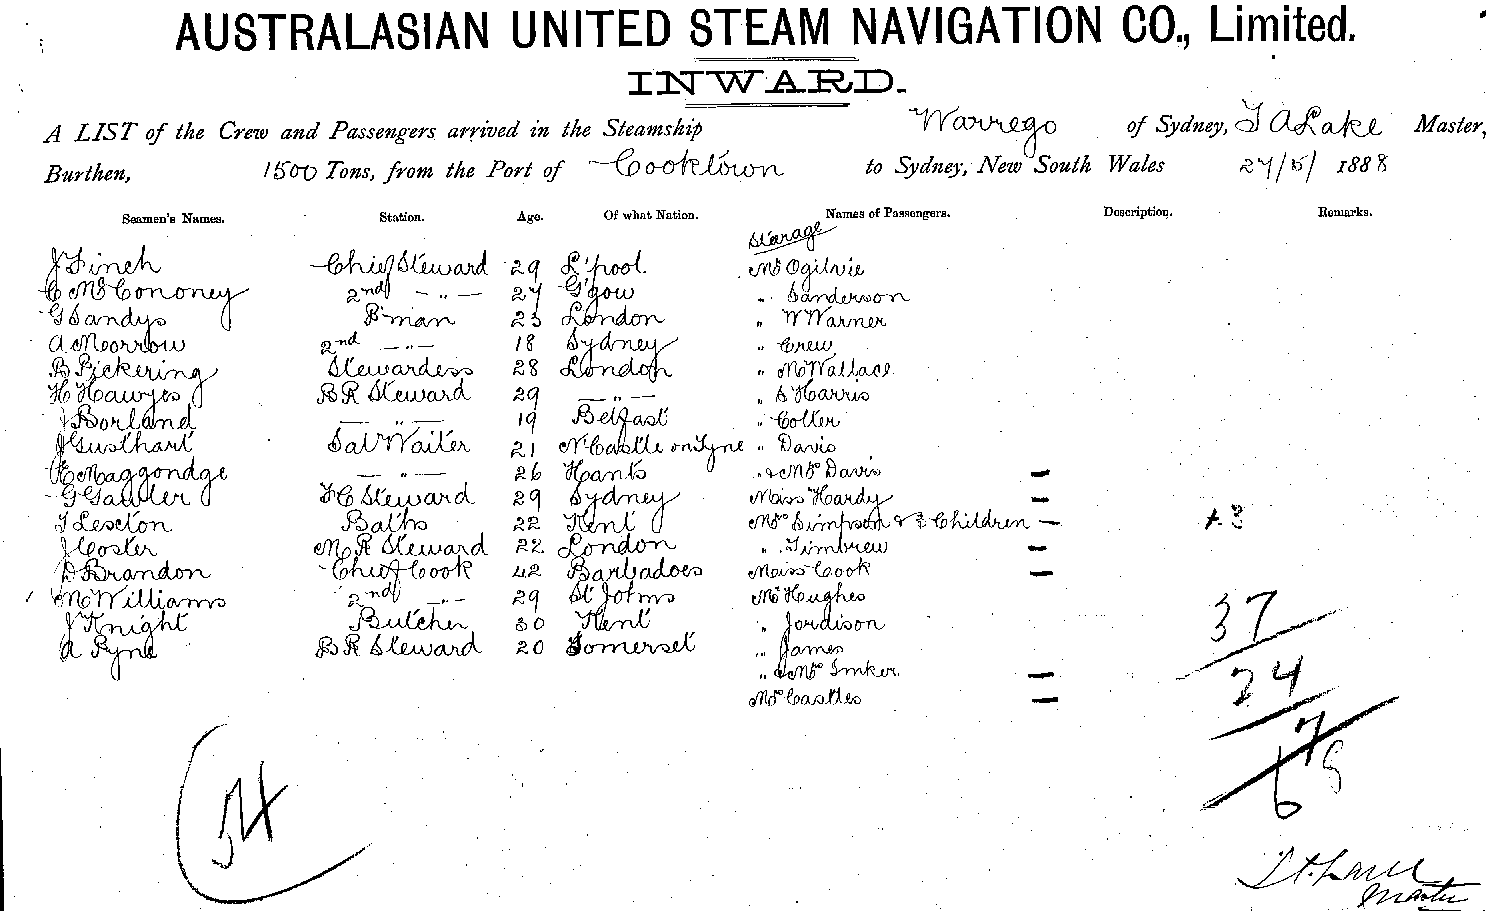 AUSTRALASIAN UNITED STEAM NAVIGATION CO., Limited.
INWARD.
A LIST of the Crew and Passengers arrived in the Steamship Warrego of Sydney, T A Lake Master,
Burthen, 1500 Tons, from the Port of Cooktown to Sydney, New South Wales 27/5/ 1888
Seamen's Names. Station. Age. Of what Nation. Names of Passengers. Description. Remarks.
Sterage
J Finch Chief Steward 29 L'pool. Mr Ogilvie
C McCononey 2nd — „ — 27 G'gow „ Sanderson
G Sandys B'man 23 London „ W Warner
A Morrow 2nd — „ — 18 Sydney „ Crew
B Pickering Stewardess 28 London „ McWallace
H Hawyes B R Steward 29 — „ — „ S Harris
J Borland — „ — 19 Belfast „ Colter
J Gusthart Sal Waiter 21 N'Castle on Tyne „ Davis
Maggondge — „ — 26 Hants „ & Mrs Davis —
G Gawler F C Steward 29 Sydney Miss Hardy —
T Leston Baths 22 Kent Mrs Simpson & Children —
J Coster M R Steward 22 London „ Timbrew —
D Brandon Chief Cook 42 Barbadoes Miss Cook —
M Williams 2nd „ 29 St Johns Mr Hughes
J Knight Butcher 30 Kent „ Jordison
A Pyne B R Steward 20 Somerset „ James
„ & Mrs Imker —
Mrs Castles —
37
24
54
T A Lake
Master